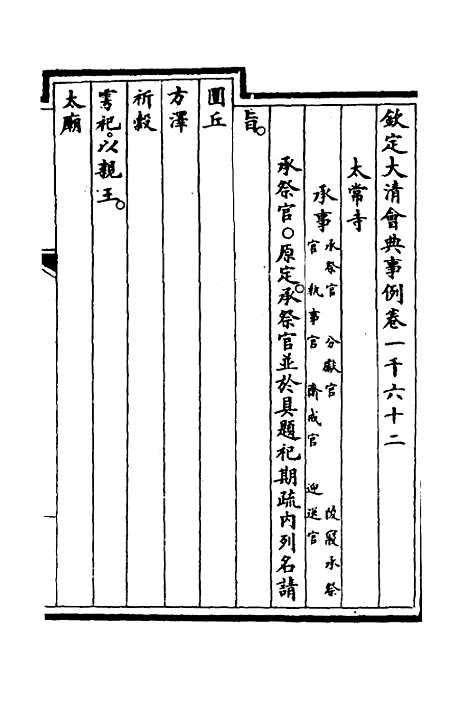 欽定大清會典事例卷一千六十二
太常寺
承事 承祭官 分獻官 後殿承祭
官 執事官 齋戒官 迎送官
承祭官○原定。承祭官並於具題祀期疏內列名請
旨。
圜丘
方澤
祈穀
雩祀。以親王。
太廟